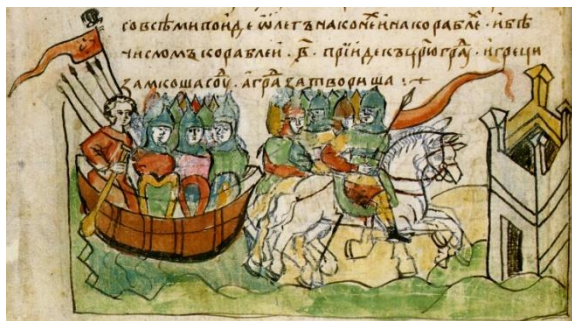 со всѣми поиде ѡлегъ на конеⷯ и на кораблеⷯ · и бѣ
числомъ кораблеи · в҃ · прїиде къ цр҃югра · и греци
замкоша соуⷣ · а граⷣ затвориша :·+